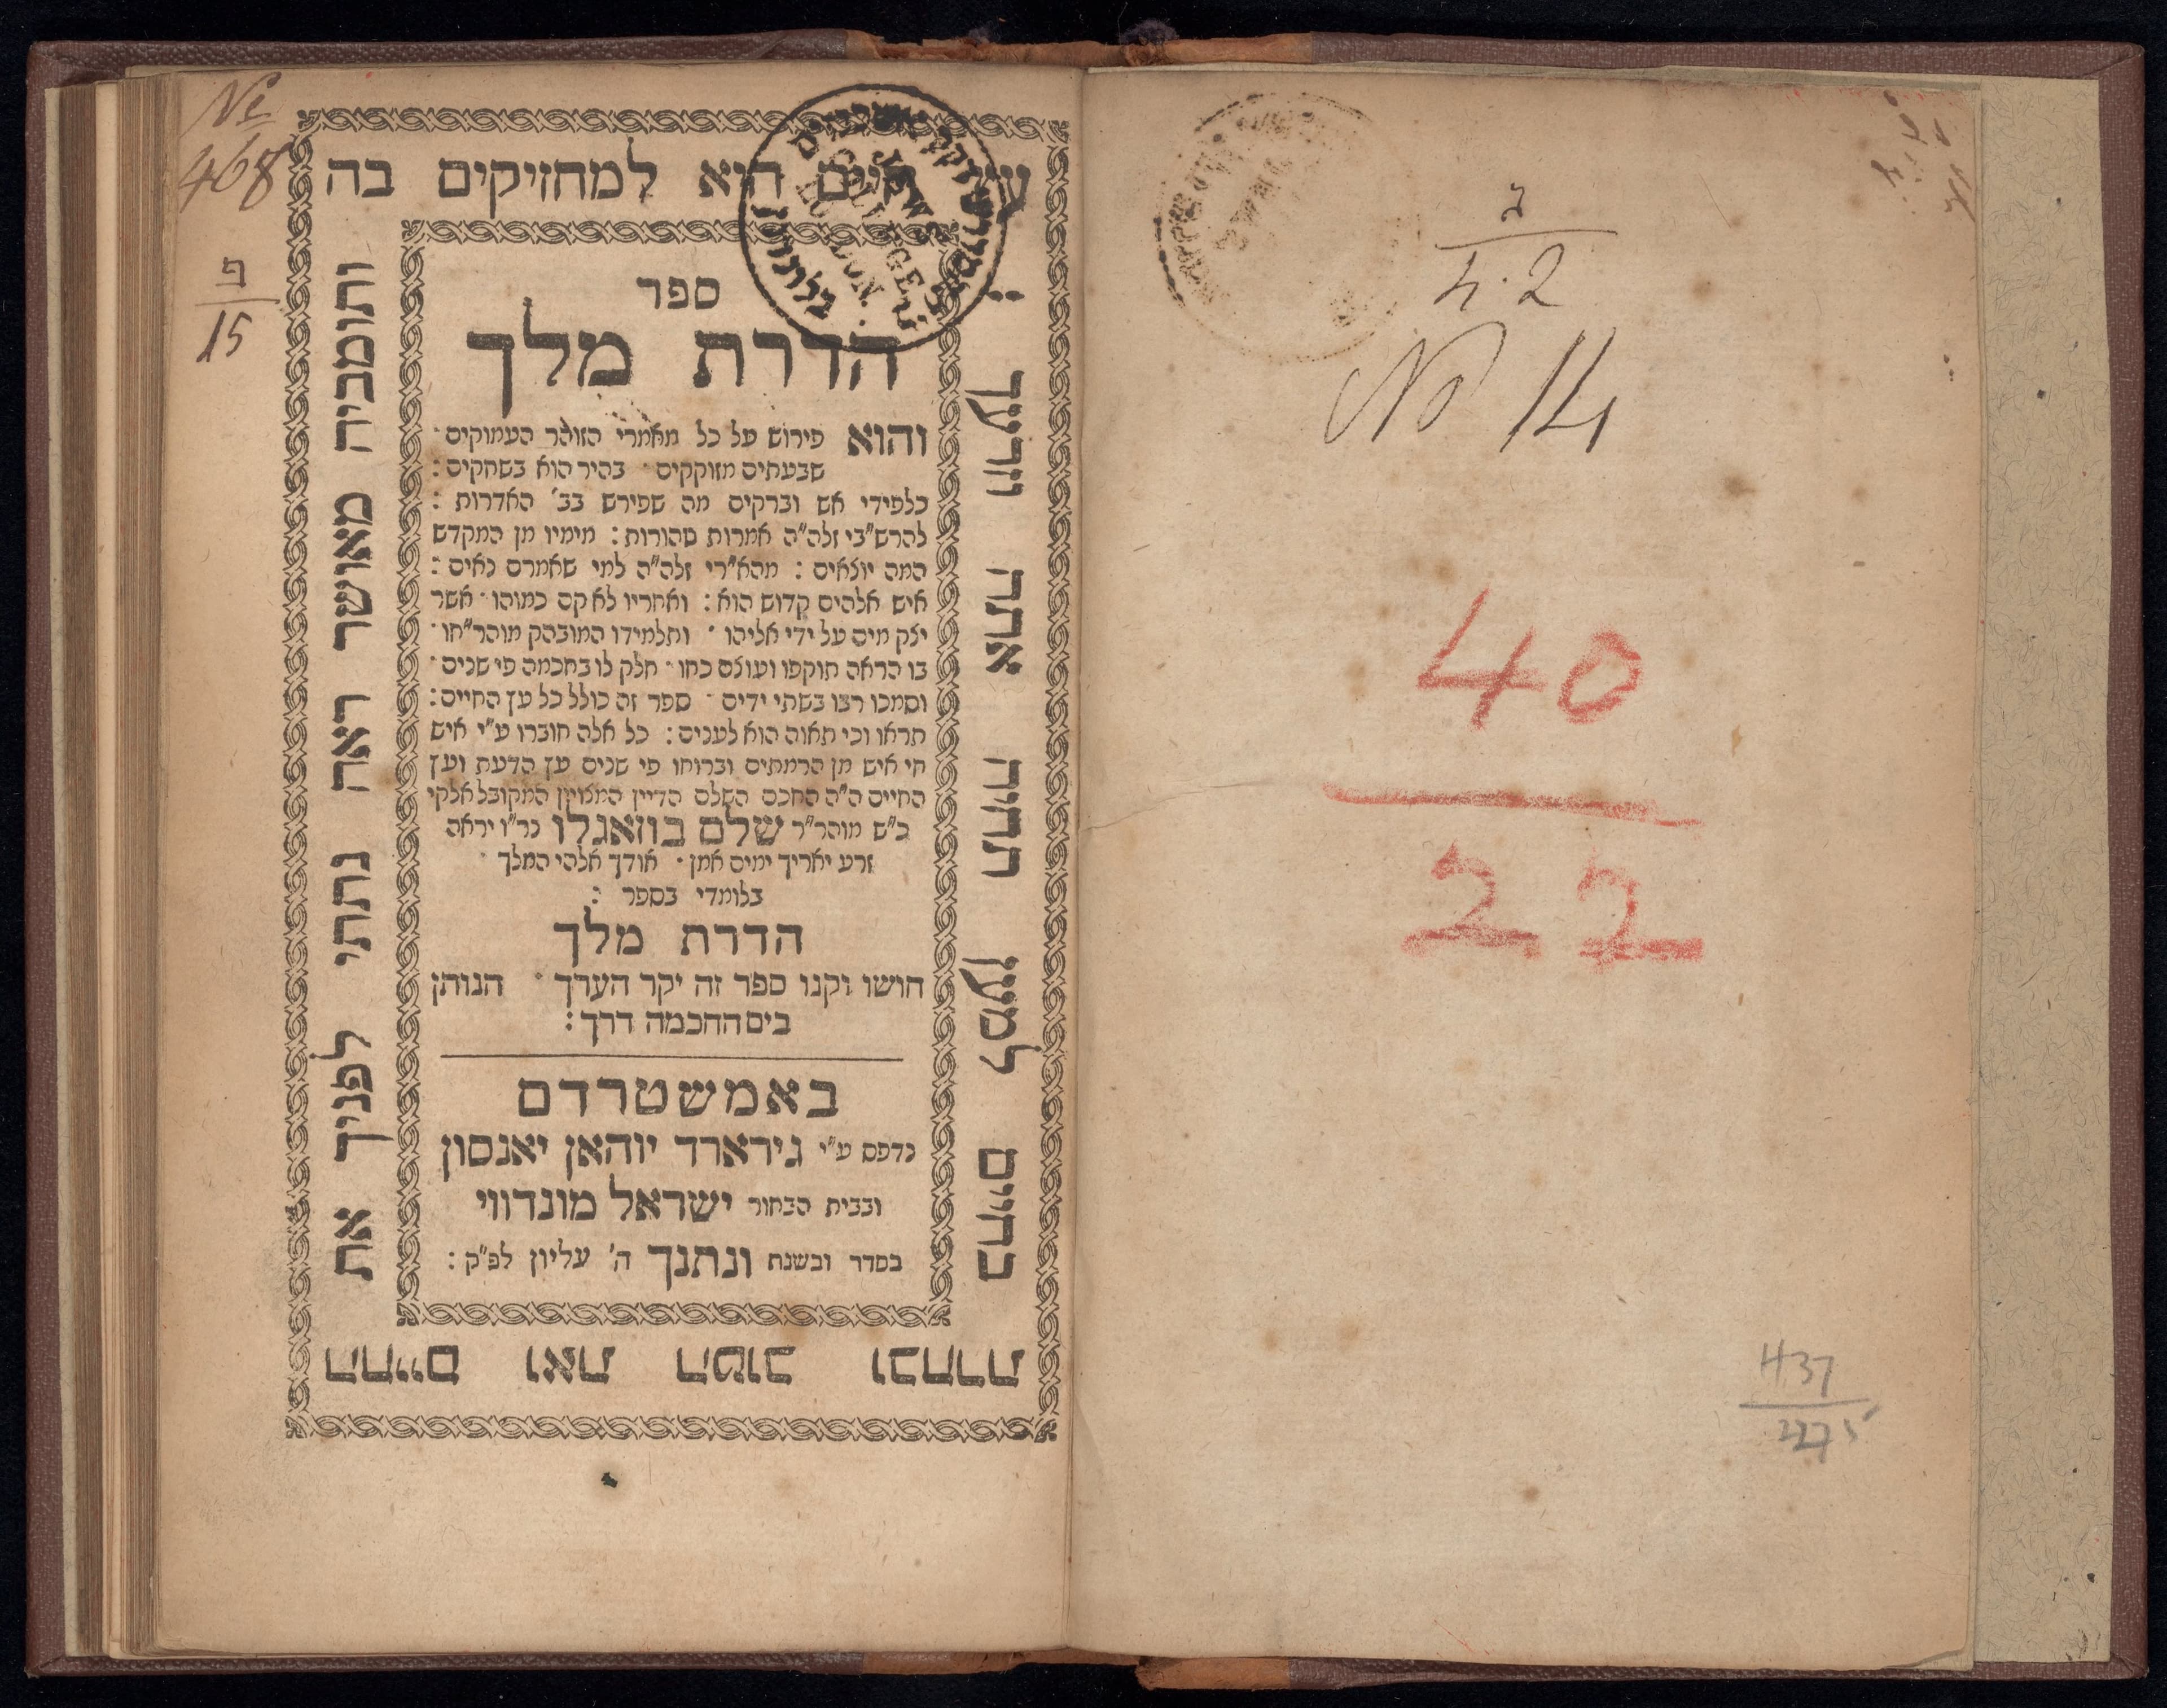 ב
ד.2
No 14
40
22
437
2275
No
468
פ
15
עץ חיים היא למחזיקים בה
וזרעך אתה תחיה למען בחיים
ובחרת הטוב ואת החיים
את לפניך נתתי ראה מאושר ותומכיה
ספר
הדרת מלך
והוא פירוש על כל מאמרי הזוהר העמוקים·
שבעתים מזוקקים· בהיר הוא בשחקים:
כלפידי אש וברקים מה שפירש בב' האדרות:
להרש"בי זלה"ה אמרות טהורות: מימיו מן המקדש
המה יוצאים: מהא"רי זלה"ה למי שאמרם נאים:
איש אלהים קדוש הוא: ואחריו לא קם כמוהו· אשר
יצק מים על ידי אליהו· ותלמידו המובהק מוהר"חו·
בו הראה תוקפו ועוצם כחו· חלק לו בחכמה פי שנים·
וסמכו רבו בשתי ידים· ספר זה כולל כל עץ החיים:
תראו וכי תאוה הוא לענים: כל אלה חוברו ע"י איש
חי איש מן הרמתים וברוחו פי שנים עץ הדעת ועץ
החיים ה"ה החכם השלם הדיין המצויין המקובל אלקי
כ"ש מוהר"ר שלם בוזאגלו נר"ו יראה
זרע יאריך ימים אמן· אודך אלהי המלך·
בלומדי בספר:
הדרת מלך
חושו וקנו ספר זה יקר הערך· הנותן
בים החכמה דרך:
באמשטרדם
נדפס ע"י גירארד יוהאן יאנסון
ובבית הבחור ישראל מונדווי
בסדר ובשנת ונתנך ה' עליון לפ"ק: